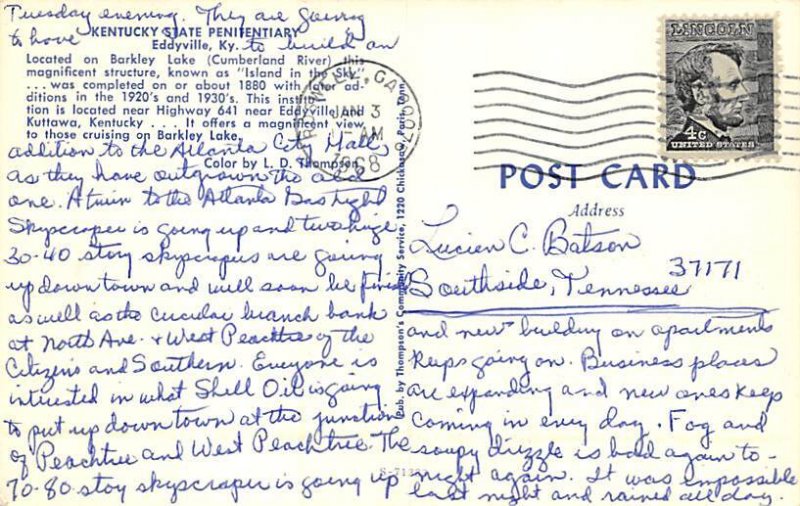 Tuesday evening. They are going
to have
KENTUCKY STATE PENITENTIARY
Eddyville, Ky.
to build an
Located on Barkley Lake (Cumberland River) this
magnificent structure, known as "Island in the Sky"
. . . was completed on or about 1880 with later ad-
ditions in the 1920's and 1930's. This institu-
tion is located near Highway 641 near Eddyville and
Kuttawa, Kentucky . . . It offers a magnificent view
to those cruising on Barkley Lake.
Color by L. D. Thompson
addition to the Atlanta City Hall
as they have outgrown the old
one. A twin to the Atlanta Gas Light
Skyscraper is going up and two huge
30-40 story skyscrapers are going
up down town and will soon be finished
as well as the circular branch bank
at North Ave. & West Peachtree of the
Citizens and Southern. Everyone is
interested in what Shell Oil is going
to put up down town at the junction
of Peachtree and West Peachtree. The
70-80 stoy skyscraper is going up
Pub. by Thompson's Community Service, 1220 Chickasaw, Paris, Tenn.
S-712
GA
JAN 3
AM
1968
LINCOLN
4c
UNITED STATES
POST CARD
Address
Lucien C. Batson
Southside, Tennessee 37171
and new building on apartments
keeps going on. Business places
are expanding and new ones keep
coming in every day. Fog and
soupy drizzle is bad again to-
night again. It was impossible
last night and rained all day.